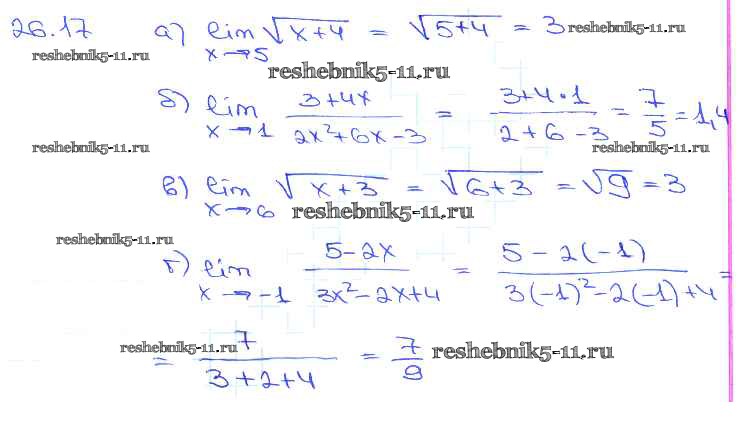 26.17 а) lim √(x+4) = √(5+4) = 3 reshebnik5-11.ru
x→5
reshebnik5-11.ru
reshebnik5-11.ru
б) lim (3+4x)/(2x²+6x-3) = (3+4·1)/(2+6-3) = 7/5 = 1,4
x→1
reshebnik5-11.ru reshebnik5-11.ru
в) lim √(x+3) = √(6+3) = √9 = 3
x→6 reshebnik5-11.ru
reshebnik5-11.ru
г) lim (5-2x)/(3x²-2x+4) = (5-2(-1))/(3(-1)²-2(-1)+4) =
x→-1
reshebnik5-11.ru
= 7/(3+2+4) = 7/9 reshebnik5-11.ru